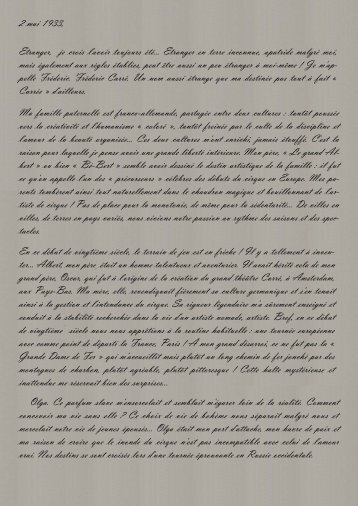 2 mai 1933,
Etranger, je crois l'avoir toujours été... Etranger en terre inconnue, apatride malgré moi,
mais également aux règles établies, peut être aussi un peu étranger à moi-même ! Je m'ap-
pelle Fréderic, Fréderic Carré. Un nom aussi étrange que ma destinée pas tout à fait «
Carrée » d'ailleurs.
Ma famille paternelle est franco-allemande, partagée entre deux cultures : tantôt poussée
vers la créativité et l'humanisme « coloré », tantôt freinée par le culte de la discipline et
l'amour de la beauté organisée... Ces deux cultures m'ont enrichi, jamais étouffé. C'est la
raison pour laquelle je pense avoir une grande liberté intérieure. Mon père, « Le grand Al-
bert » ou bien « Bi-Bert » semble avoir dessiné le destin artistique de la famille : il fut
ce qu'on appelle l'un des « précurseurs » célèbres des débuts du cirque en Europe. Mes pa-
rents tombèrent ainsi tout naturellement dans le chaudron magique et bouillonnant de l'ar-
tiste de cirque ! Pas de place pour la monotonie, de même pour la sédentarité... De villes en
villes, de terres en pays variés, nous vivions notre passion au rythme des saisons et des spec-
tacles.
En ce début de vingtième siècle, le terrain de jeu est en friche ! Il y a tellement à inven-
ter... Albert, mon père était un homme talentueux et aventurier. Il avait hérité cela de mon
grand père, Oscar, qui fut à l'origine de la création du grand théâtre Carré, à Amsterdam,
aux Pays-Bas. Ma mère, elle, revendiquait fièrement sa culture germanique et s'en tenait
ainsi à la gestion et l'intendance du cirque. Sa rigueur légendaire m'a sûrement enseigné et
conduit à la stabilité recherchée dans la vie d'un artiste nomade, artiste. Bref, en ce début
de vingtième siècle nous nous apprêtions à la routine habituelle : une tournée européenne
avec comme point de départ la France, Paris ! A mon grand désarroi, ce ne fut pas la «
Grande Dame de Fer » qui m'accueillit mais plutôt un long chemin de fer jonché par des
montagnes de charbon, plutôt agréable, plutôt pittoresque ! Cette halte mystérieuse et
inattendue me réservait bien des surprises...
Olga. Ce parfum slave m'ensorcelait et semblait m'égarer loin de la réalité. Comment
concevoir ma vie sans elle ? Ce choix de vie de bohème nous séparait malgré nous et
morcelait notre vie de jeunes épousés... Olga était mon port d'attache, mon havre de paix et
ma raison de croire que le monde du cirque n'est pas incompatible avec celui de l'amour
vrai. Nos destins se sont croisés lors d'une tournée éprouvante en Russie occidentale.